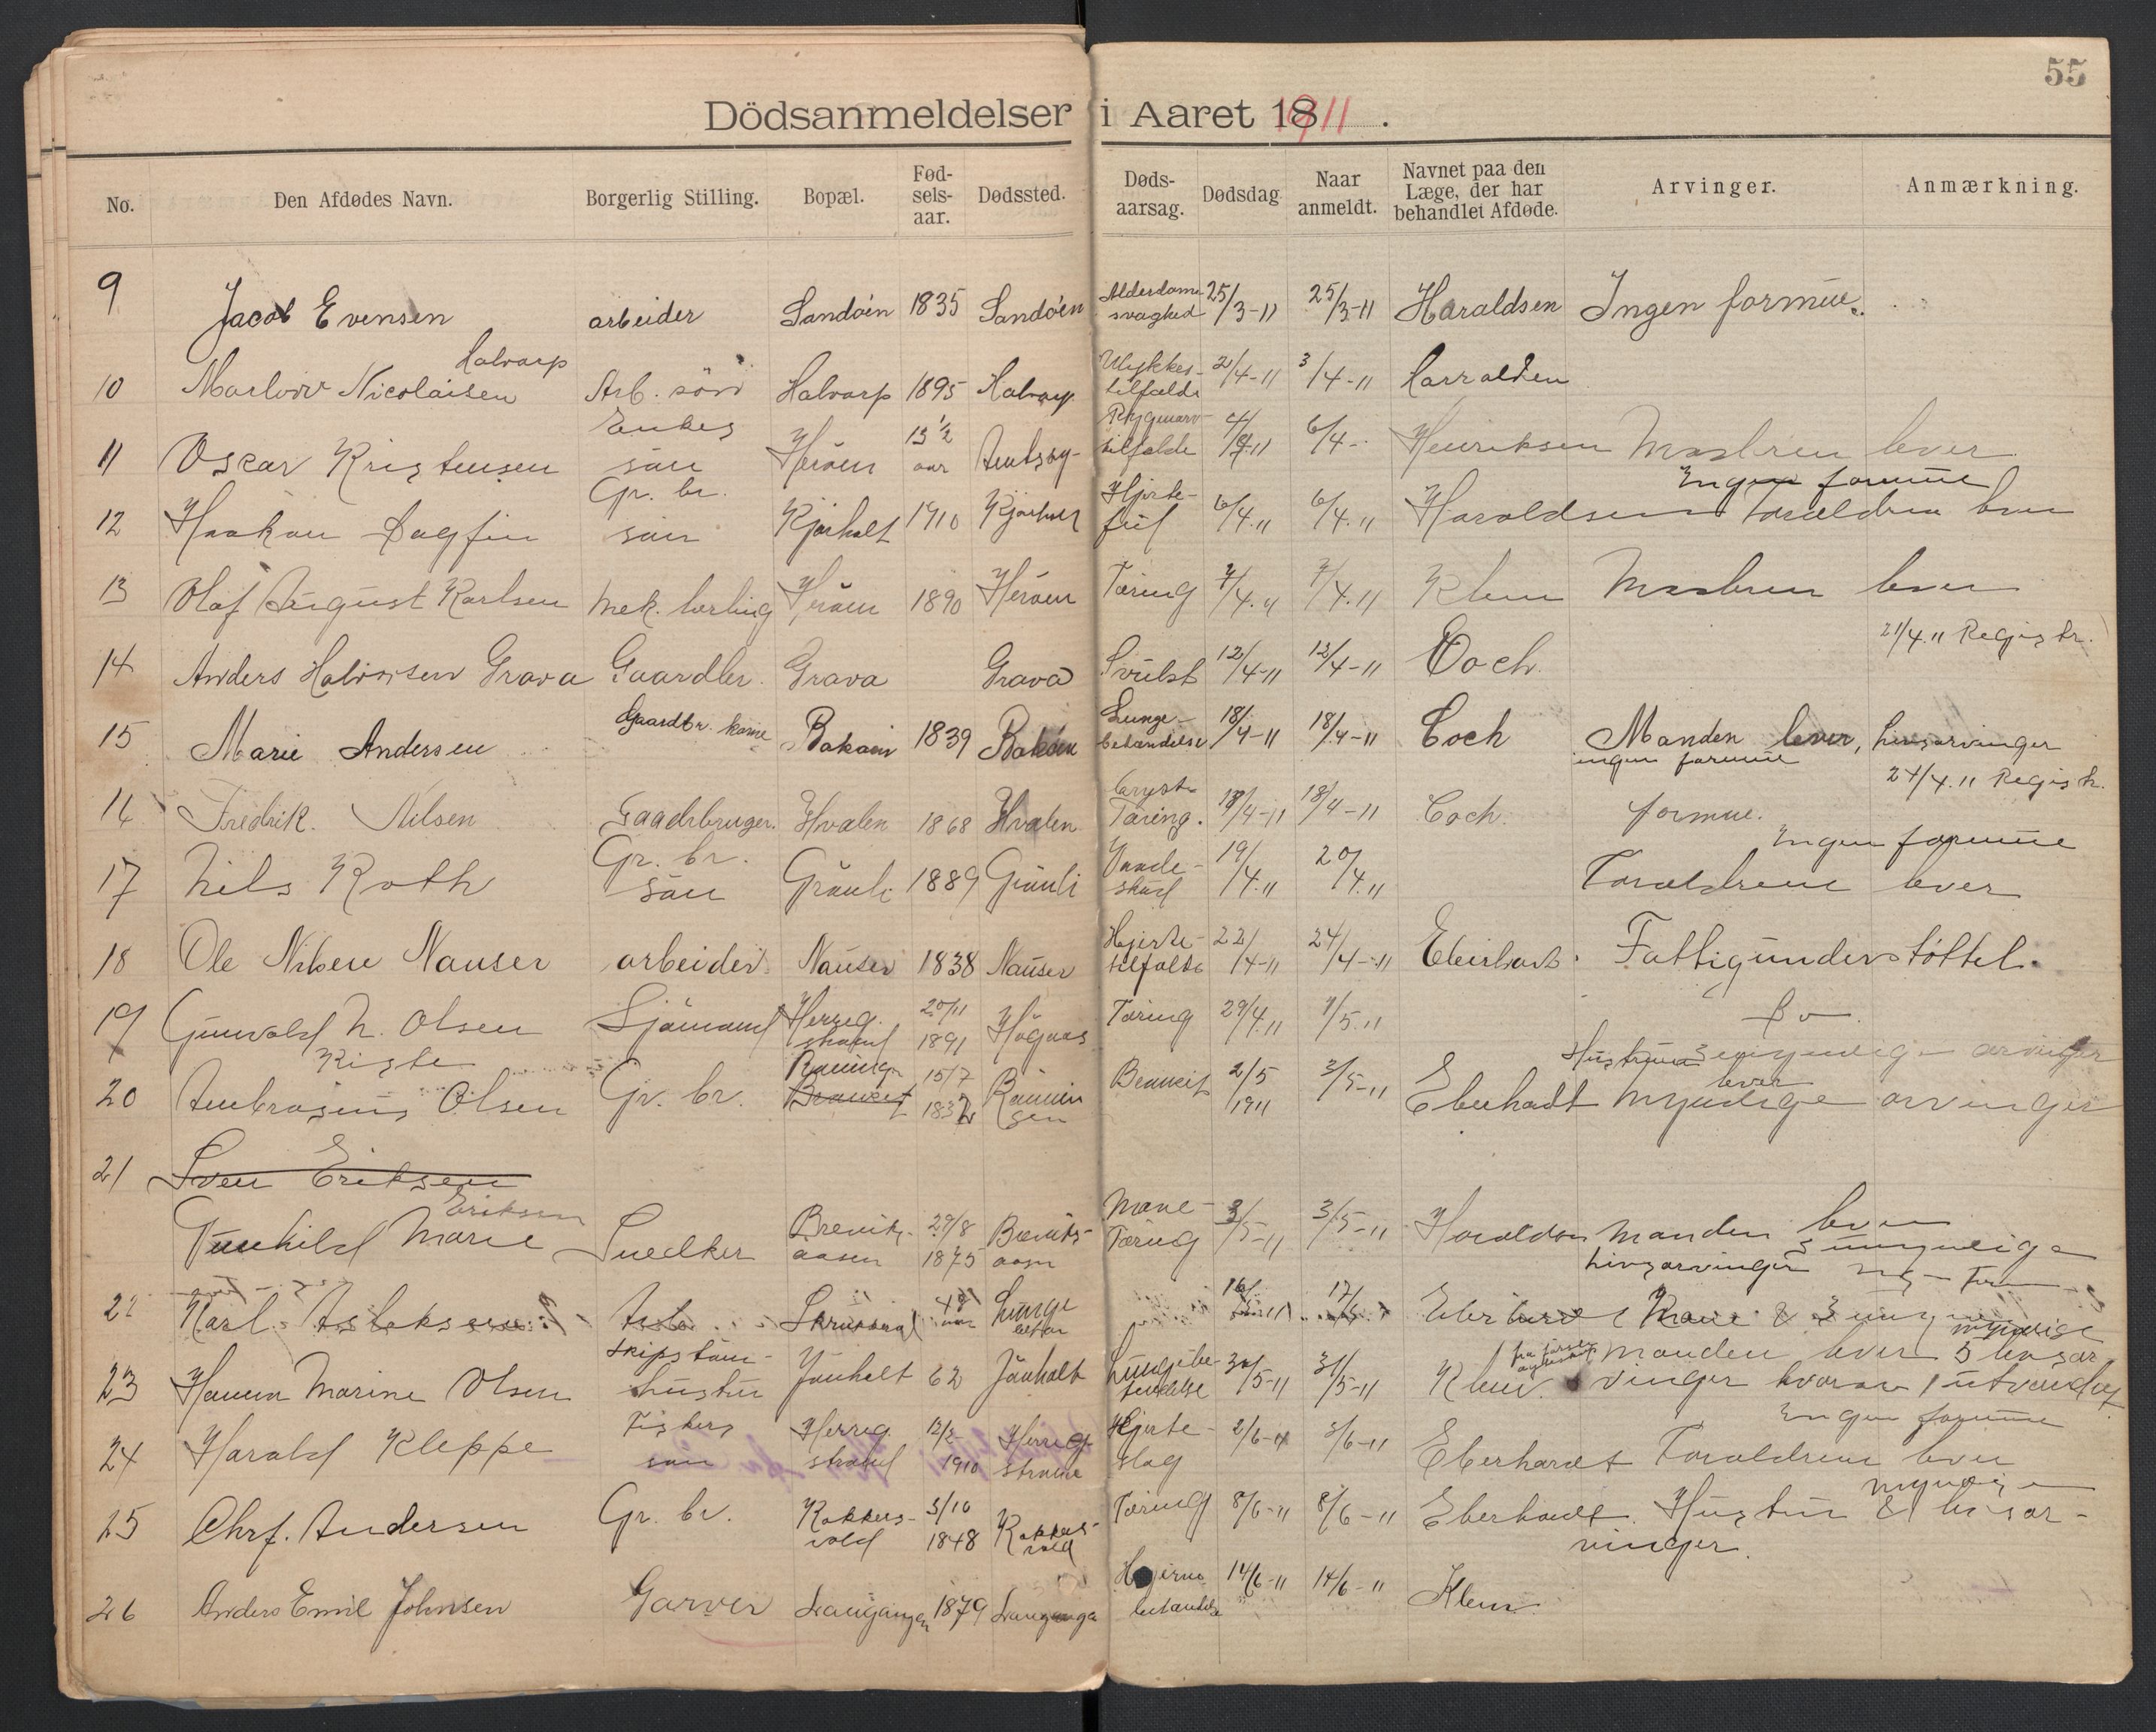 55
Dödsanmeldelser i Aaret 1911.
No. Den Afdødes Navn. Borgerlig Stilling. Bopæl. Fødselsaar. Dødssted. Dødsaarsag. Dødsdag. Naar anmeldt. Navnet paa den Læge, der har behandlet Afdøde. Arvinger. Anmærkning.
9 Jacob Evensen arbeider Sandøen 1835 Sandøen Alderdomssvaghed 25/3-11 25/3-11 Haraldsen Ingen formue.
Halvarp
10 Nicolaisen Arb. sön Halvarp 1895 Halvarp Ulykkestilfælde 2/4-11 3/4-11
11 Oscar Kristensen Enkes sön Heröen 13 1/2 aar tilfælde 4/4-11 6/4- Henriksen Modren lever
Ingen formue
12 Haakon Dagfin Gr. br. sön Kjørholt 1910 Kjørholt Hjertefeil 6/4.11 6/4.11 Haraldsen Forældrene lever
13 Olaf August Karlsen Mek. lærling Heröen 1890 Heröen Tæring 7/4.11 7/4.11 Klem Modren lever
21/4.11 Registr.
14 Anders Halvorsen Grava Gaardbr. Grava Grava Svulst 12/4-11 12/4-11 Coch.
15 Marie Andersen Gaardbr. kone 1839 Lungebetændelse 18/4-11 18/4-11 Coch Manden lever, livsarvinger
ingen formue
24/4.11 Registr.
16 Fredrik Nilsen Gaadrbruger. Hvalen 1868 Hvalen Brysttæring. 18/4-11 18/4-11 Coch. formue.
Ingen formue
17 Nils Roth Gr. br. sön Grönli 1889 Grönli 19/4.11 20/4.11 Forældrene lever
18 Ole Nilsen Nauser arbeider Nauser 1838 Nauser Hjertetilfælde 22/4-11 24/4-11 Eberhart. Fattigunderstöttet.
19 Gunvald N. Olsen Sjömand Herregstrand 20/11 1891 Tæring 29/4.11 1/5.11 Do.
20 Ambrosius Olsen Gr. br. 15/7 Benkreft 2/5 1911 3/5-11 Eberhardt Hustru lever myndige arvinger
21 Sven Eriksen
Gunhild Marie Eriksen Snedker Breviksaasen 29/8 1875 Breviksaasen Mavetæring 3/5-11 3/5-11 Haraldsen Manden lever
umyndige livsarvinger
22 Karl Aslaksen Arb. 49 aar Lungebetæn 16/5 17/5 Eberhard Kone & 3
23 Hanna Marine Olsen Skipstöm. hustru 62 Lungebetændelse 30/5-11 31/5-11 Klem. manden lever 5 livsarvinger hvorav 1 utvandret
Ingen formue
24 Harald Kleppe Fiskers sön Herregstrand 12/2 1910 Herregstrand Hjerteslag 2/6-11 3/6-11 Eberhardt Forældrene lever
25 Chrf. Andersen Gr. br. Kokkersvold 3/10 1848 Kokkersvold Tæring 8/6-11 8/6-11 Eberhardt. Hustru & myndige livsarvinger.
26 Anders Emil Johnsen Garver Langangen 1879 Langanga Hjernebetændelse 14/6-11 14/6-11 Klem